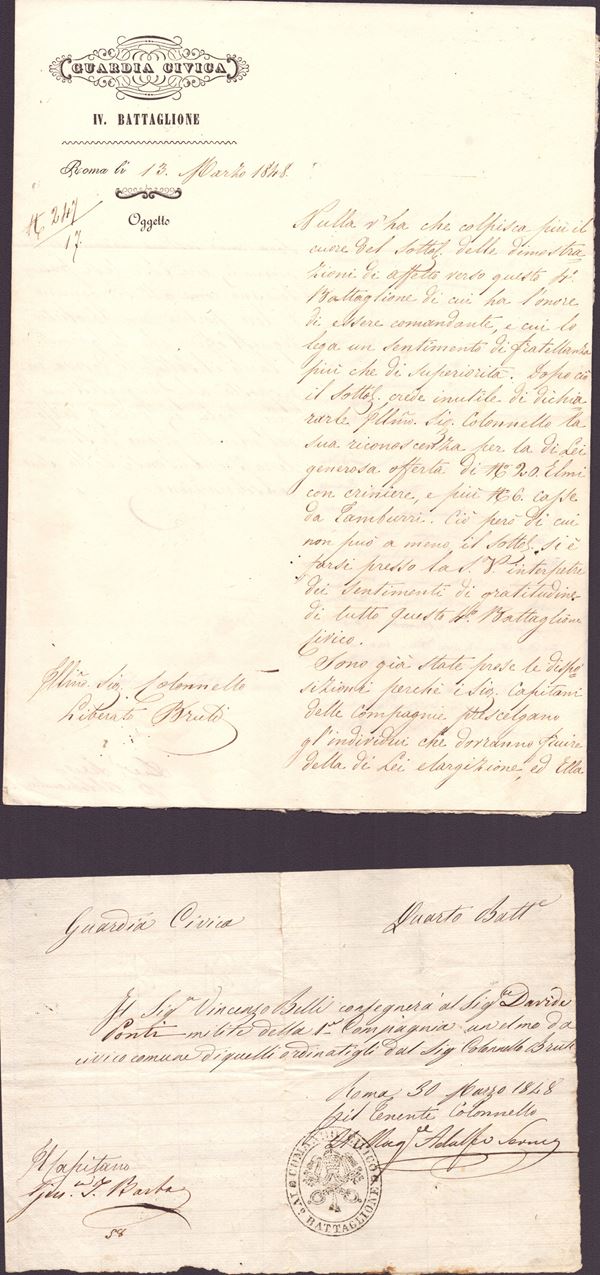 GUARDIA CIVICA
IV. BATTAGLIONE
Roma li 13. Marzo 1848.
N. 247
17.
Oggetto
Nulla v'ha che colpisca più il
cuore del Sottos. delle dimostra
zioni di affetto verso questo 4°.
Battaglione di cui ha l'onore
di essere comandante, e cui lo
lega un sentimento di fratellanza
più che di superiorità. Dopo ciò
il Sottos. crede inutile di dichia
rarle Illmo. Sig. Colonnello la
sua riconoscenza per la di Lei
generosa offerta di N. 20. Elmi
con criniere, e più N. 6. Casse
da Tamburri. Ciò però di cui
non può a meno il Sottos. si è
farsi presso la S. V. interpetre
dei Sentimenti di gratitudine
di tutto questo 4°. Battaglione
Civico.
Sono già state prese le dispo
sizioni perchè i Sig. Capitani
delle Compagnie prescelgano
gl'individui che dovranno fruire
della di Lei elargizione, ed Ella
Illmo. Sig. Colonnello
Liberato Bruti
Guardia Civica
Quarto Batt.e
Il Sig.r Vincenzo Belli consegnerà al Sig.re Davide
Ponti milite della 1.a Compagnia un elmo da
civico comune di quelli ordinatigli dal Sig Colonnello Bruti
Roma 30 Marzo 1848
pil Tenente Colonnello
Il Mag.re Adolfo
Il Capitano
F. Barba
58
COMANDO CIVICO
IV.° BATTAGLIONE